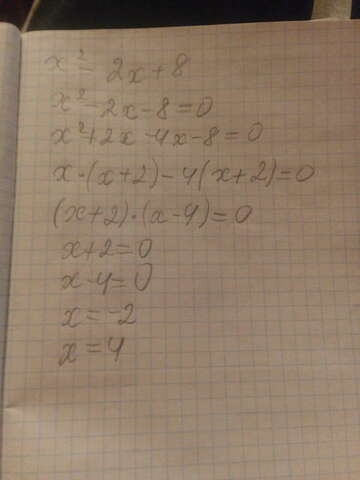 x² - 2x + 8
x² - 2x - 8 = 0
x² + 2x - 4x - 8 = 0
x · (x + 2) - 4(x + 2) = 0
(x + 2) · (x - 4) = 0
x + 2 = 0
x - 4 = 0
x = -2
x = 4